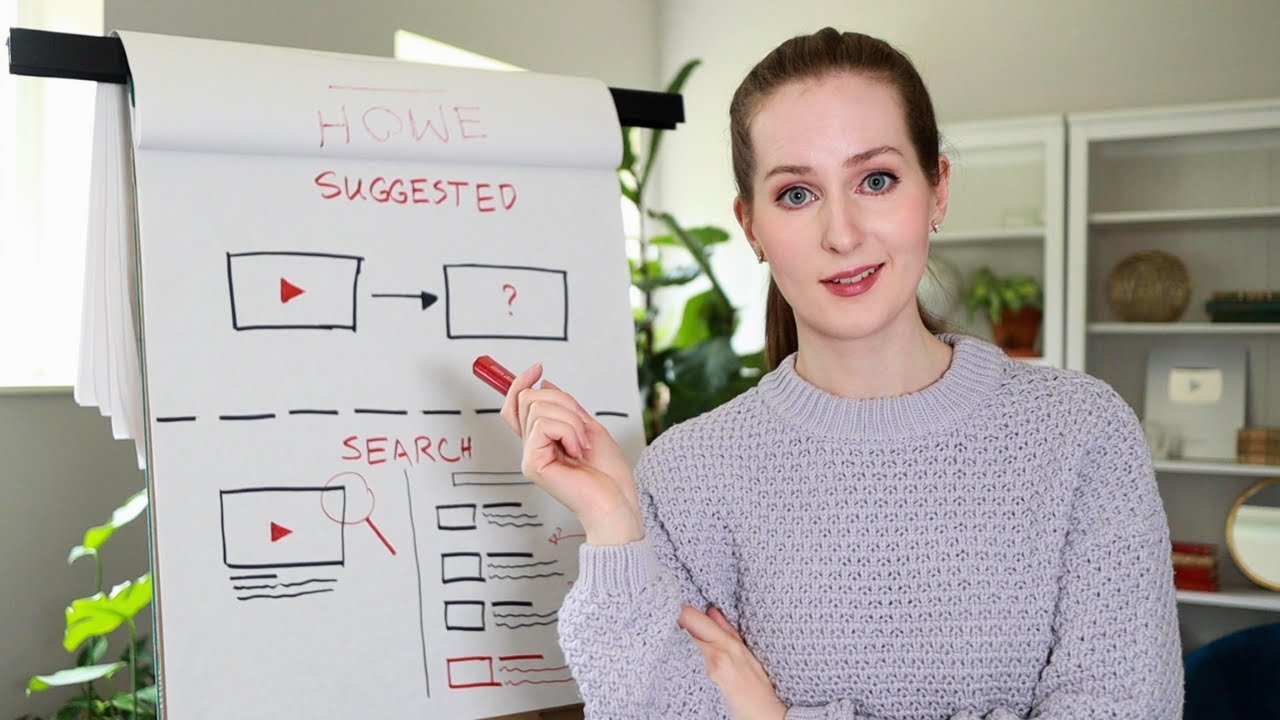 HOWE
SUGGESTED
?
SEARCH